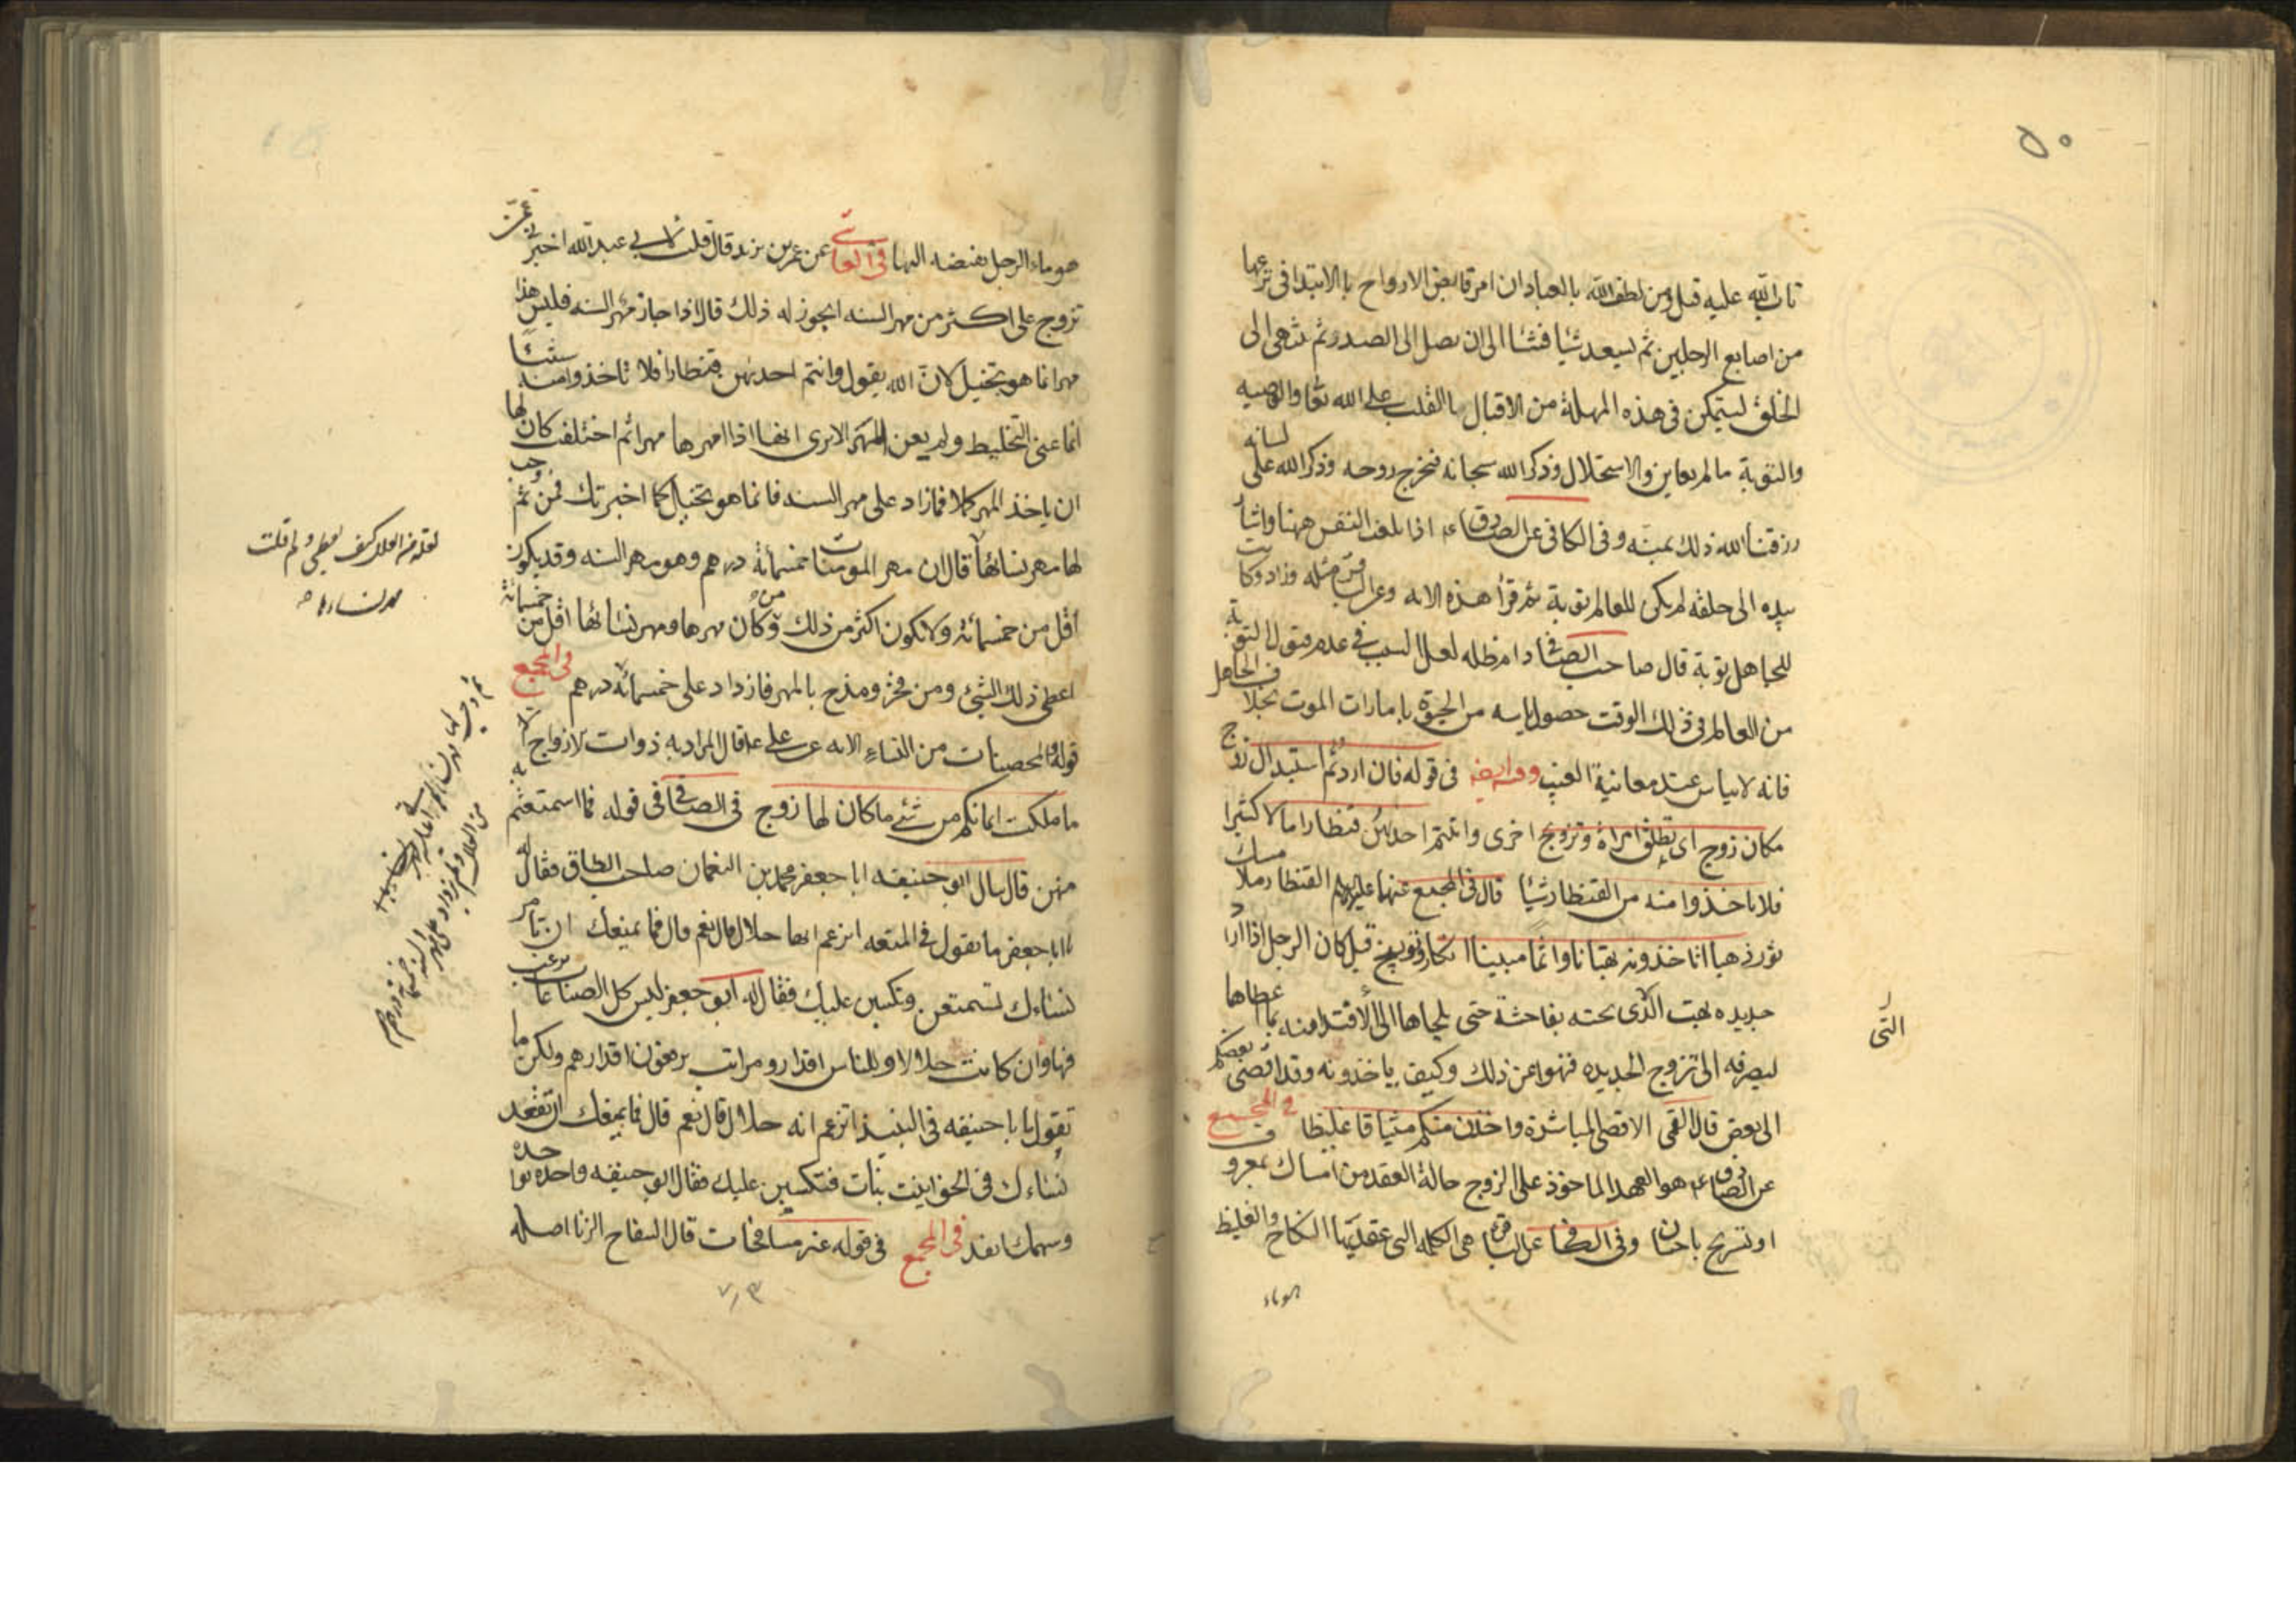 ۵۰
تاب الله عليه قيل ومن لطف الله بالعباد ان امر قابض الارواح بالابتداء فى نزعها
من اصابع الرجلين ثم يصعد شيئا فشئا الى ان يصل الى الصدر ثم تنتهى الى
الحلق ليتمكن فى هذه المهلة من الاقبال بالقلب على الله تعا والوصيه
والتوبة ما لم يعاين والاستحلال وذكر الله سبحانه فيخرج روحه وذكر الله على لسانه
رزقنا الله ذلك بمنه وفى الكافى عن الصادق ع اذا بلغت النفس ههنا واشار
بيده الى حلقه لم يكن للعالم توبة ثم قرأ هذه الايه وعن الباقر مثله وزاد وكانت
للجاهل توبة قال صاحب الصافى دام ظله لعل السبب فى عدم قبول التوبة
من العالم فى ذلك الوقت حصول ياسه من الحيوة بامارات الموت بخلاف الجاهل
فانه لا يياس عند معاينة الغيب وفى قوله فان اردتم استبدال زوج
مكان زوج اى تطلق امراة وتزوج اخرى واتيتم احديهن قنطارا مالا كثيرا
فلا تاخذوا منه من القنطار شيئا قال فى المجمع عنهما عليهم القنطار ملا مسك
ثور ذهبا اتاخذونه بهتانا واثما مبينا انكار وتوبيخ قيل كان الرجل اذا اراد
جديده بهت الذى تحته بفاحشة حتى يلجاها الى الافتدا منه بما اعطاها
التى
ليصرفه الى تزوج الجديده فنهوا عن ذلك وكيف ياخذونه وقد افضى بعضكم
الى بعض قال القمى الافضى المباشرة واخذن منكم ميثاقا غليظا فى المجمع
عن الصادق ع هو العهد الماخوذ على الزوج حالة العقد من امساك بمعروف
او تسريح باحسان وفى الكافى عن الباقر هى الكلمه التى عقد بها النكاح والغليظ
هو ماء
هو ماء الرجل يفضه اليها فى العياشى عن عمر بن يزيد قال قلت لابى عبد الله اخبرنى عمن
تزوج على اكثر من مهر السنه ايجوز له ذلك قال اذا جاز مهر السنه فليس هذا
مهرا انما هو نحل لان الله يقول واتيتم احديهن قنطارا فلا تاخذوا منه شيئا
انما عنى التخليط ولم يعن المهر الا ترى انها اذا امهرها مهرا ثم اختلعت كان لها
ان ياخذ المهر كملا فما زاد على مهر السنه فانما هو نحل كما اخبرتك فمن ثم وجب
لها مهر نسائها قال ان مهر المومنات خمسمائة درهم وهو مهر السنه وقد يكون
اقل من خمسمائة ولا يكون اكثر من ذلك ومن كان مهرها ومهر نسائها اقل من خمسمائة
اعطى ذلك الشئ ومن فخر وبذخ بالمهر فازداد على خمسمائه درهم فى المجمع
قوله والمحصنات من النساء الايه عن على ع قال المراد به ذوات الازواج
ما ملكت ايمانكم من شئ ما كان لها زوج فى الصافى فى قوله فما استمتعتم به
منهن قال سال ابو حنيفه ابا جعفر محمد بن النعمان صاحب الطاق فقال له
يا ابا جعفر ما تقول فى المتعه اتزعم انها حلال قال نعم قال فما يمنعك ان تامر
نساءك تستمتعن وتكسبن عليك فقال له ابو جعفر ليس كل الصناعات يرغب
فيها وان كانت حلالا وللناس اقدار ومراتب يرفعون اقدارهم ولكن ما
تقول يا با حنيفه فى النبيذ اتزعم انه حلال قال نعم قال فما يمنعك ان تقعد
نساءك فى الحوانيت نباذات فتكسبن عليك فقال ابو حنيفه واحده بواحده
وسهمك انفذ فى المجمع فى قوله غير مسافحات قال السفاح الزنا اصله
كيف يعطى ولم قلت